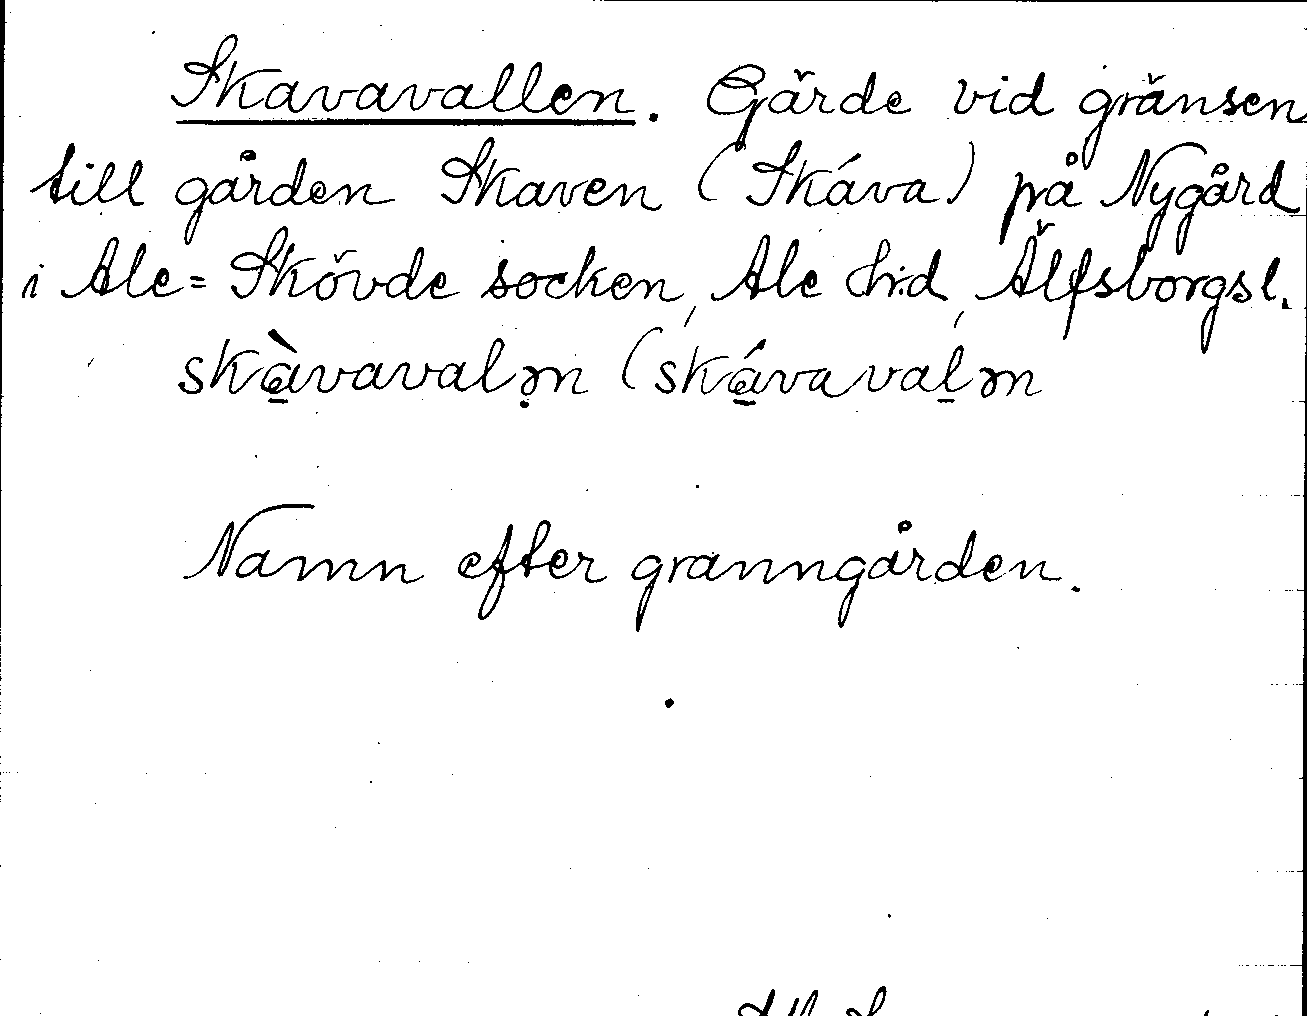 Skavavallen. Gärde vid gränsen
till gården Skaven (Skáva) på Nygård
i Ale=Skövde socken, Ale hrd, Älfsborgsl.
skàvavalən (skávavalən
Namn efter granngården.